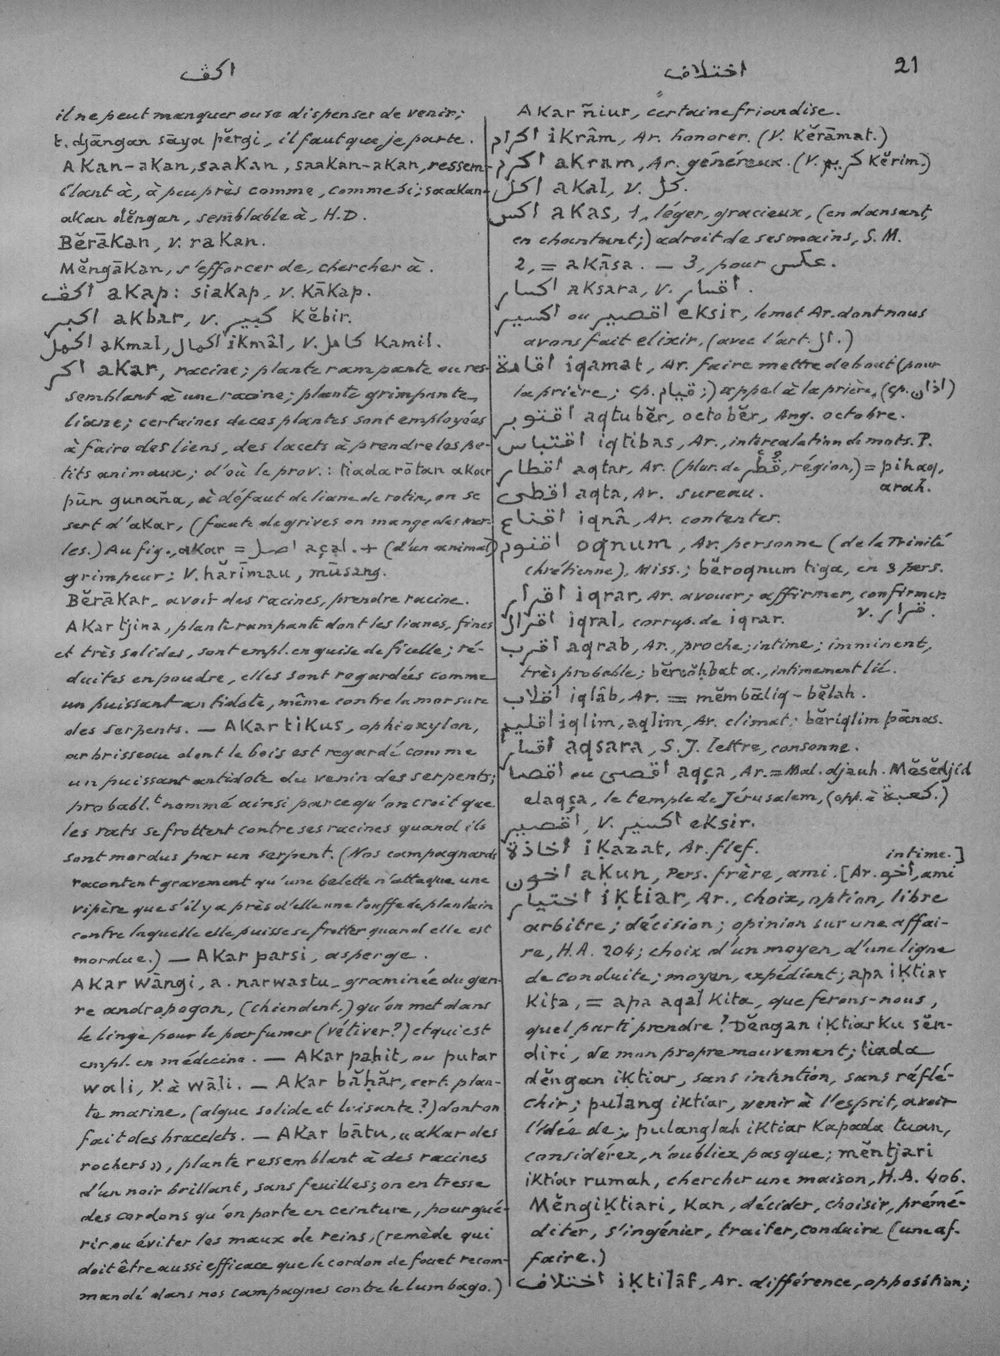 اكڤ
اختلاف
21
il ne peut manquer ou se dispenser de venir;
t. djāngan sāya pĕrgi, il faut que je parte.
Akan-akan, saakan, saakan-akan, ressem-
blant à, à peu près comme, comme si; saakan-
akan dĕngan, semblable à, H.D.
Bĕrākan, v. rakan.
Mĕngākan, s'efforcer de, chercher à.
اكڤ akap: siakap, v. kākap.
اكبر akbar, v. كبير Kĕbir.
اكمل akmal, اكمال ikmâl, v. كامل Kamil.
اكر akar, racine; plante rampante ou res-
semblant à une racine; plante grimpante,
liane; certaines de ces plantes sont employées
à faire des liens, des lacets à prendre les pe-
tits animaux; d'où le prov.: tiada rōtan akar
pūn gunaña, à défaut de liane de rotin, on se
sert d'akar, (faute de grives on mange des mer-
les.) Au fig., akar = اصل açal. + (d'un animal)
grimpeur; V. hărīmau, mūsang.
Bĕrākar, avoir des racines, prendre racine.
Akar tjina, plante rampante dont les lianes, fines
et très solides, sont empl. en guise de ficelle; ré-
duites en poudre, elles sont regardées comme
un puissant antidote, même contre la morsure
des serpents. — Akar tikus, ophioxylon,
arbrisseau dont le bois est regardé comme
un puissant antidote du venin des serpents;
probabl.t nommé ainsi parce qu'on croit que
les rats se frottent contre ses racines quand ils
sont mordus par un serpent. (Nos campagnards
racontent gravement qu'une belette n'attaque une
vipère que s'il y a près d'elle une touffe de plantain
contre laquelle elle puisse se frotter quand elle est
mordue.) — Akar parsi, asperge.
Akar wāngi, a. narwastu, graminée du gen-
re andropogon, (chiendent,) qu'on met dans
le linge pour le parfumer (vétiver?) et qui est
empl. en médecine. — Akar paḥit, ou putar
wali, V. à wāli. — Akar băḥăr, cert. plan-
te marine, (algue solide et luisante?) dont on
fait des bracelets. — Akar bātu, «akar des
rochers», plante ressemblant à des racines
d'un noir brillant, sans feuilles; on en tresse
des cordons qu'on porte en ceinture, pour gué-
rir ou éviter les maux de reins, (remède qui
doit être aussi efficace que le cordon de fouet recom-
mandé dans nos campagnes contre le lumbago.)
Akar ñiur, certaine friandise.
اكرام ikrâm, Ar. honorer. (V. Kĕrāmat.)
اكرم akram, Ar. généreux. (V. كريم Kĕrim.)
اكل akal, v. كل.
اكس akas, 1, léger, gracieux, (en dansant,
en chantant;) adroit de ses mains, S.M.
2, = akāsa. — 3, pour عكس.
اكسار aksara, v. اقسار.
اكسير ou اقصير eksir, le mot Ar. dont nous
avons fait elixir, (avec l'art. ال.)
اقامة iqamat, Ar. faire mettre debout (pour
la prière; cp. قيام;) appel à la prière, (cp. اذان)
اقتوبر aqtubĕr, octobĕr, Ang. octobre.
اقتباس iqtibas, Ar., intercalation de mots. P.
اقطار aqtar, Ar. (plur. de قُطْر, région,) = pihaq,
arah.
اقطى aqta, Ar. sureau.
اقناع iqnâ, Ar. contenter.
اقنوم oqnum, Ar. personne (de la Trinité
chrétienne), Miss.; bĕroqnum tiga, en 3 pers.
اقرار iqrar, Ar. avouer; affirmer, confirmer.
v. قرار.
اقرال iqral, corrup. de iqrar.
اقرب aqrab, Ar., proche; intime; imminent,
très probable; bĕrsŏḥbat a., intimement lié.
اقلاب iqlâb, Ar. = mĕmbāliq-bĕlah.
اقليم iqlim, aqlim, Ar. climat; bĕriqlim pānas.
اقسار aqsara, S.J. lettre, consonne.
اقصا ou اقصى aqça, Ar. = Mal. djauh. Mĕsĕdjid
elaqça, le temple de Jérusalem, (opp. à كعبة.)
اقصير, v. اكسير eksir.
اخاذة iḲazat, Ar. fief.
اخون aḲun, Pers. frère, ami. [Ar. أخو, ami
intime.]
اختيار iḲtiar, Ar., choix, option, libre
arbitre; décision; opinion sur une affai-
re, H.A. 204; choix d'un moyen, d'une ligne
de conduite; moyen, expédient; apa iḲtiar
Kita, = apa aqal Kita, que ferons-nous,
quel parti prendre? Dĕngan iḲtiarku sĕn-
diri, de mon propre mouvement; tiada
dĕngan iḲtiar, sans intention, sans réflé-
chir; pulang iḲtiar, venir à l'esprit, avoir
l'idée de; pulanglah iḲtiar kapada tuan,
considérez, n'oubliez pas que; mĕntjari
iḲtiar rumah, chercher une maison, H.A. 406.
MĕngiḲtiari, kan, décider, choisir, prémé-
diter, s'ingénier, traiter, conduire (une af-
faire.)
اختلاف iḲtilâf, Ar. différence, opposition;